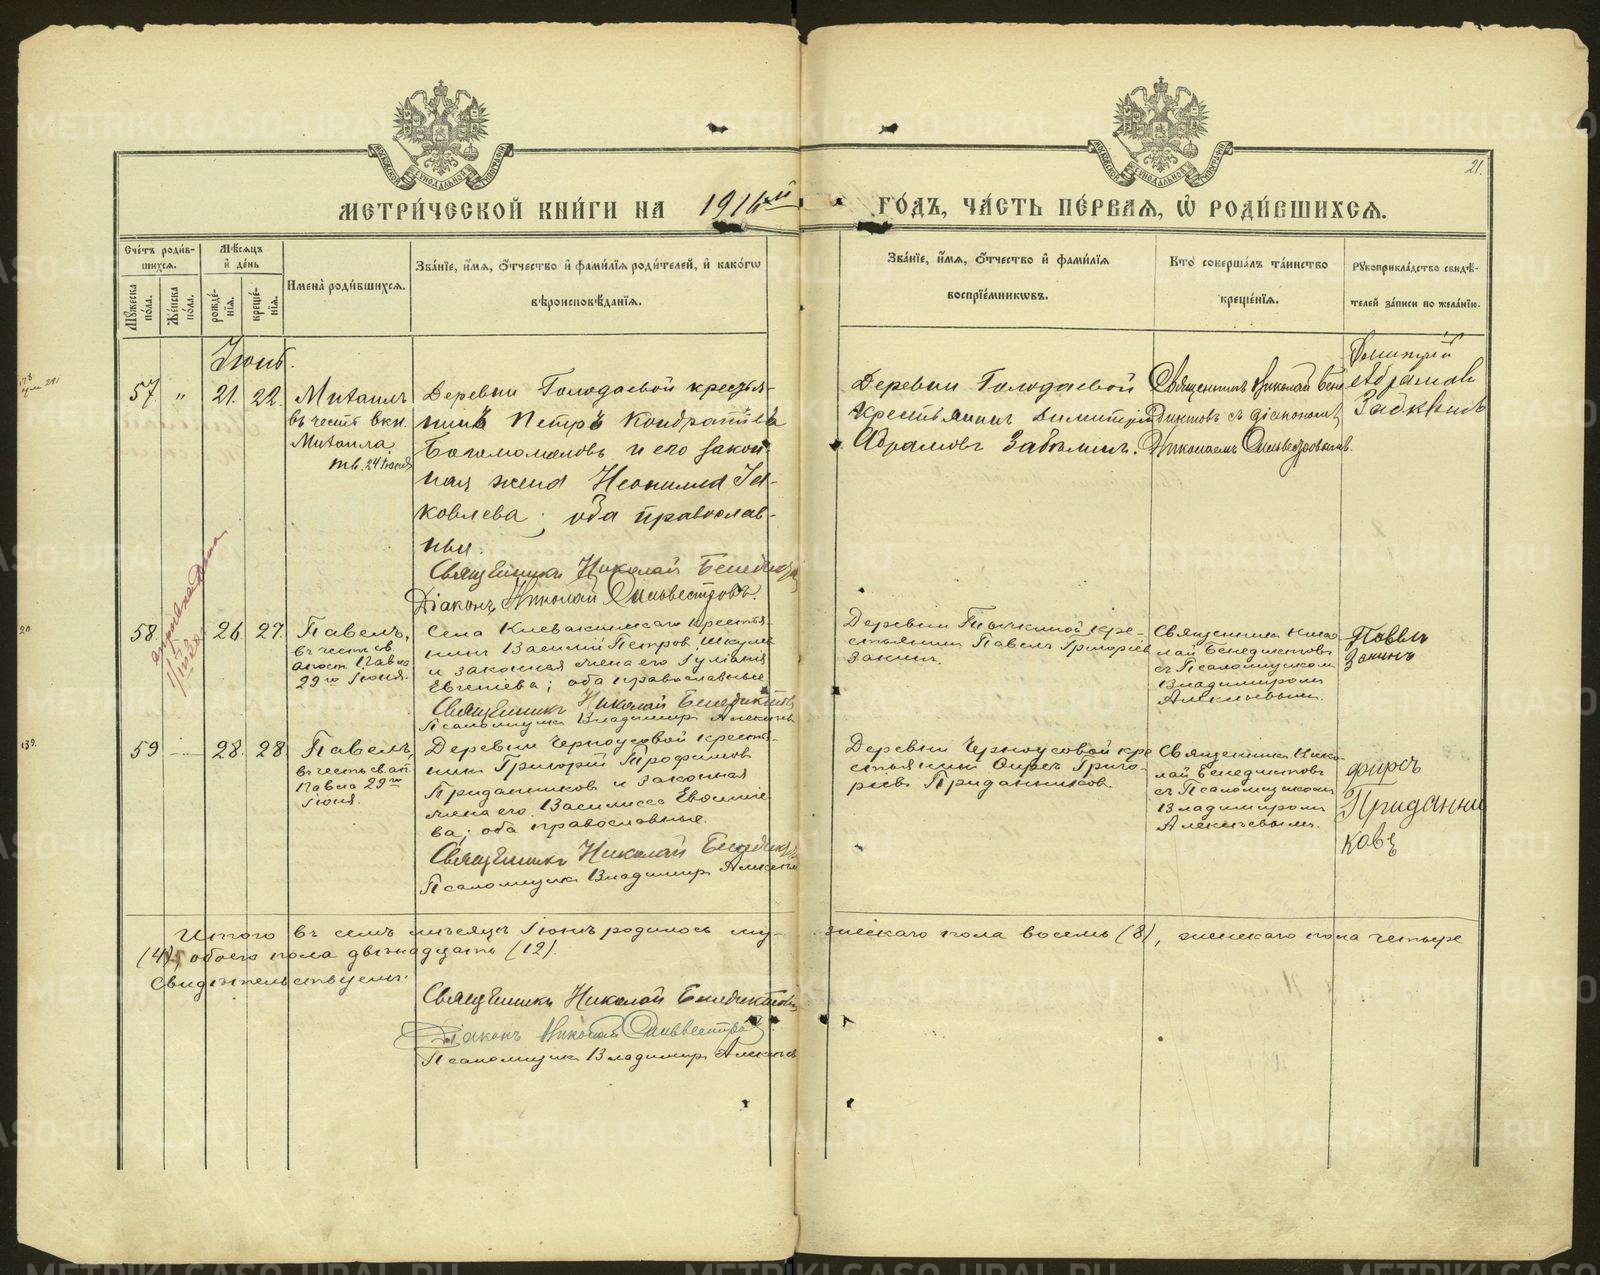 21.
МЕТРИ́ЧЕСКОЙ КНИ́ГИ НА 1916ый ГО́ДЪ, ЧА́СТЬ ПЕ́РВАЯ, Ѡ РОДИ́ВШИХСЯ.
МОСКОВСКОЙ СѴНОДАЛЬНОЙ ТИПОГРАФІИ
МОСКОВСКОЙ СѴНОДАЛЬНОЙ ТИПОГРАФІИ
Сче́тъ роди́в-
шихся.
Мѣ́сяцъ
и҆ де́нь
Мꙋ́жеска по́ла.
Же́нска по́ла.
рожде́-
нїѧ.
креще́-
нїѧ.
И҆мена̀ роди́вшихся.
Зва́нїе, и҆́мѧ, ѻ҆́тчество и҆ фами́лїѧ роди́телей, и҆ како́гѡ
вѣроисповѣ́данїѧ.
Зва́нїе, и҆́мѧ, ѻ҆́тчество и҆ фами́лїѧ
воспрїе́мникѡвъ.
Кто̀ соверша́лъ та́инство
креще́нїѧ.
Рꙋкоприкла́дство свидѣ́-
телей за́писи по жела́нїю.
Іюнь.
57. " 21. 22.
Михаилъ
въ честь вкн.
Михаила
тв. 24 іюня
Деревни Голодаевой крестья-
нинъ Петръ Кондратіевъ
Богомоловъ и его закон-
ная жена Неонилла Іа-
ковлева; оба православ-
ныя.
Священникъ Николай Бенедиктовъ
Діаконъ Николай Сильвестровъ.
Деревни Голодаевой
крестьянинъ Димитрій
Абрамовъ
Священникъ Николай Бене
диктовъ съ діакономъ
Николаемъ Сильвестровымъ.
Дмитрий
Абрамов
58. 26 27.
Павелъ,
въ честь св.
апост. Павла
29го Іюня.
Села крестья-
нинъ Василій Петров.
и законная жена его Іуліанія
Евгеніева; оба православные
Священникъ Николай Бенедиктовъ
Псаломщикъ Владимиръ
Деревни кре-
стьянинъ Павелъ Григорьев
Закинъ.
Священникъ Нико
лай Бенедиктовъ
съ Псаломщикомъ
Владимиромъ
Павелъ
Закинъ
59 — 28. 28.
Павелъ,
въ честь св. ап.
Павла 29го
Іюня.
Деревни Черноусовой крестья-
нинъ Григорій Трофимов
Приданников и законная
жена его Василисса
ва; оба православные.
Священникъ Николай Бенедиктовъ
Псаломщикъ Владимиръ
Деревни Черноусовой кре
стьянинъ Фирсъ Григо-
ріев Приданников.
Священникъ Нико
лай Бенедиктовъ
съ Псаломщикомъ
Владимиромъ
Фирсъ
Приданни
ковъ
Итого въ семъ мѣсяцѣ Іюнѣ родилось мужескаго пола восемь (8), женскаго пола четыре
(4), обоего пола двѣнадцать (12).
Свидѣтельствуемъ:
Священникъ Николай Бенедиктовъ
Діаконъ Николай Сильвестровъ
Псаломщикъ Владимиръ
METRIKI.GASO-URAL.RU